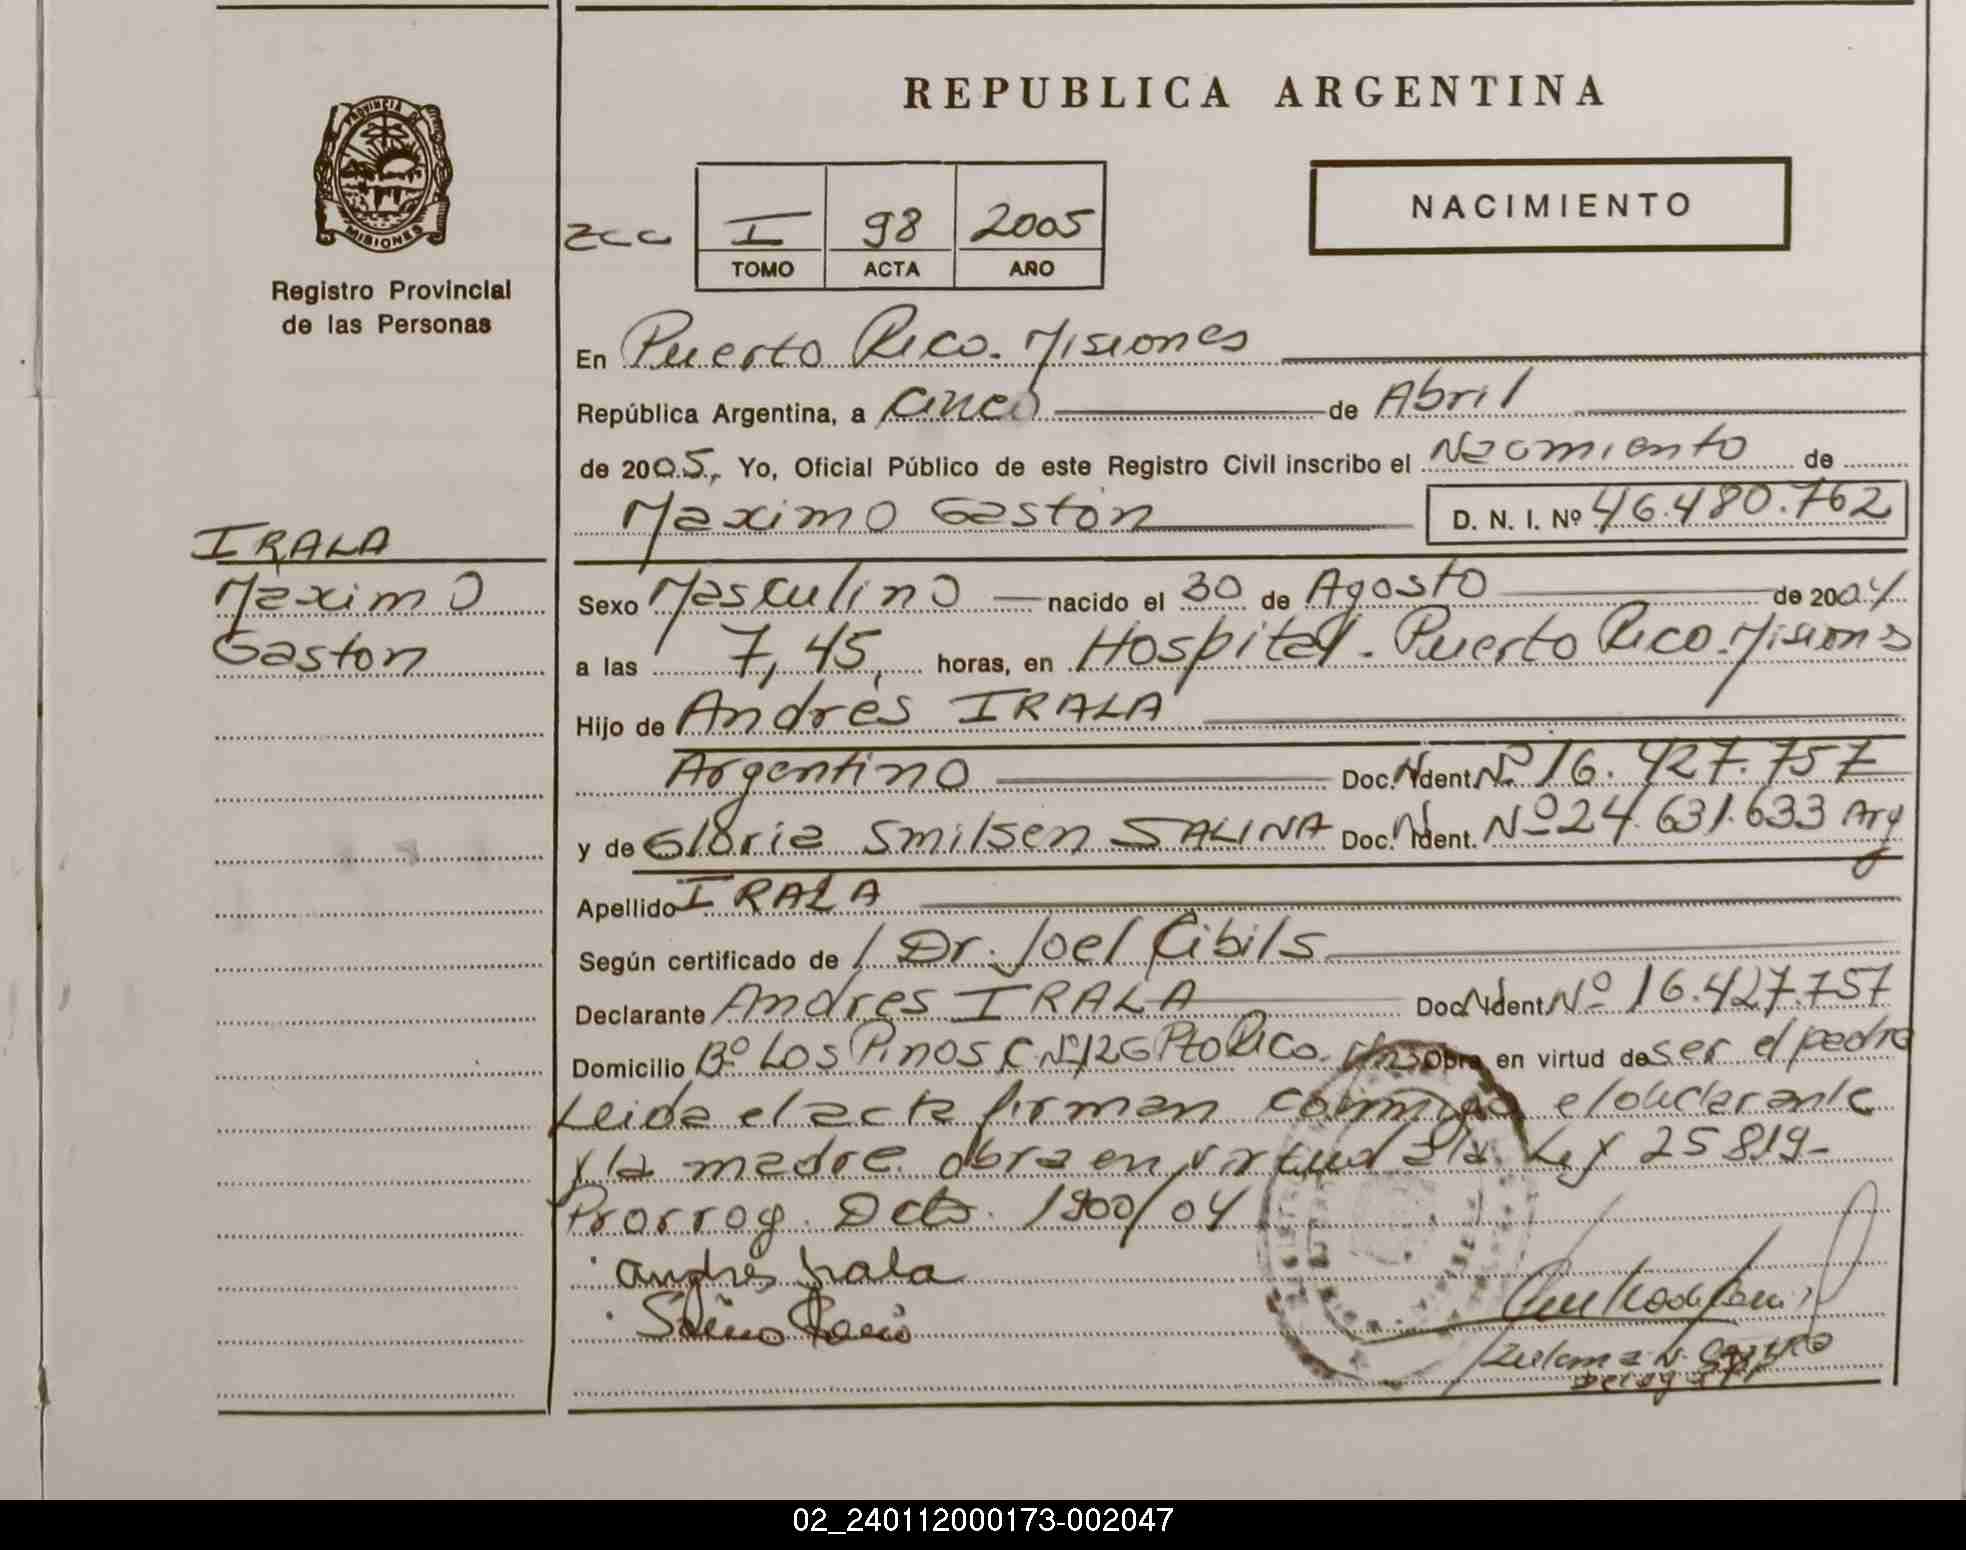 REPUBLICA ARGENTINA
PROVINCIA DE
MISIONES
Registro Provincial
de las Personas
NACIMIENTO
I 98 2005
TOMO ACTA AÑO
En Puerto Rico. Misiones
República Argentina, a cinco de Abril
de 2005, Yo, Oficial Público de este Registro Civil inscribo el Nacimiento de
Maximo Gastón D. N. I. Nº 46.480.762
IRALA
Maximo
Gaston
Sexo Masculino nacido el 30 de Agosto de 2004
a las 7,45, horas, en Hospital. Puerto Rico. Misiones
Hijo de Andrés IRALA
Argentino Doc. N Ident. Nº 16.427.757
y de Gloria Smilsen SALINA Doc. N Ident. Nº 24.631.633 Arg
Apellido IRALA
Según certificado de Dr. Joel Cibils
Declarante Andres IRALA Doc. N Ident. Nº 16.427.757
Domicilio Bº Los Pinos C.Nº126 Pto Rico. Mns Obra en virtud de ser el padre
Leida el acta firman conmigo el declarante
y la madre. obra en virtud a la Ley 25819-
Prorrog. Dcto. 1900/04
andres Irala
02_240112000173-002047